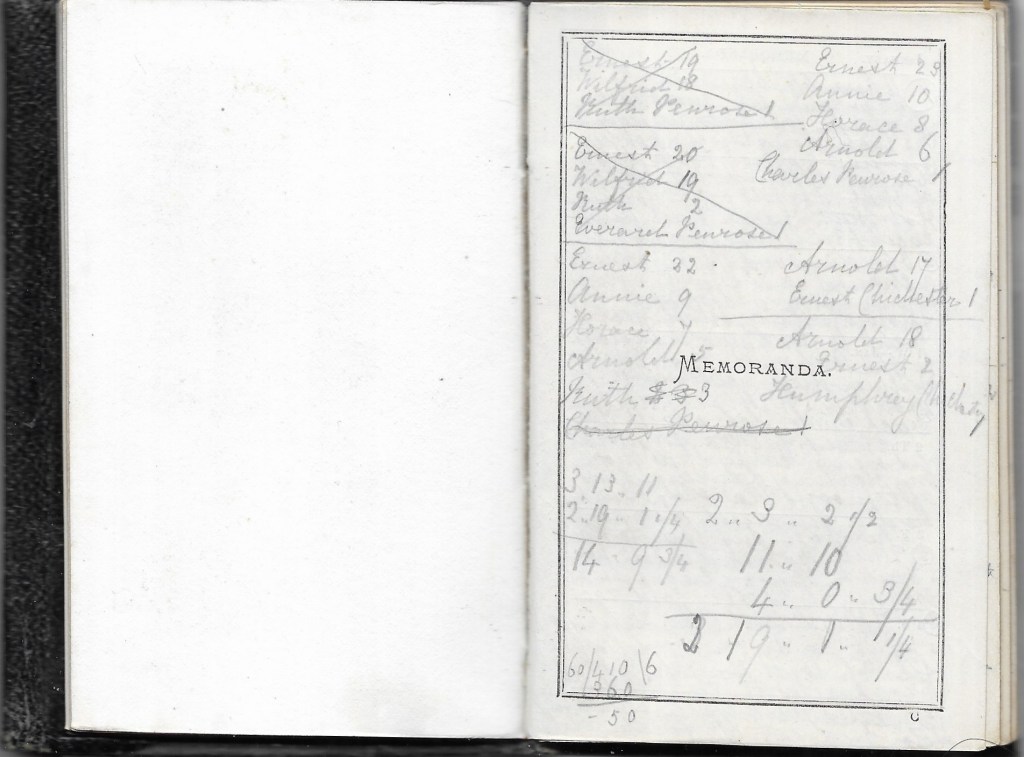 Ernest 19
Wilfrid 18
Ruth Penrose 1
Ernest 20
Wilfrid 19
Ruth 2
Everard Penrose 1
Ernest 22
Annie 9
Horace 7
Arnold 5
Ruth 3
Charles Penrose 1
Ernest 23
Annie 10
Horace 8
Arnold 6
Charles Penrose 1
Arnold 17
Ernest Chichester 1
Arnold 18
Ernest 2
Humphrey
MEMORANDA.
3 . 13 .. 11
2 .. 19 .. 1 1/4
14 .. 9 3/4
2 .. 3 .. 2 1/2
11 .. 10
4 .. 0 .. 3/4
2 19 .. 1 .. 1/4
60/410\6
360
-50
C